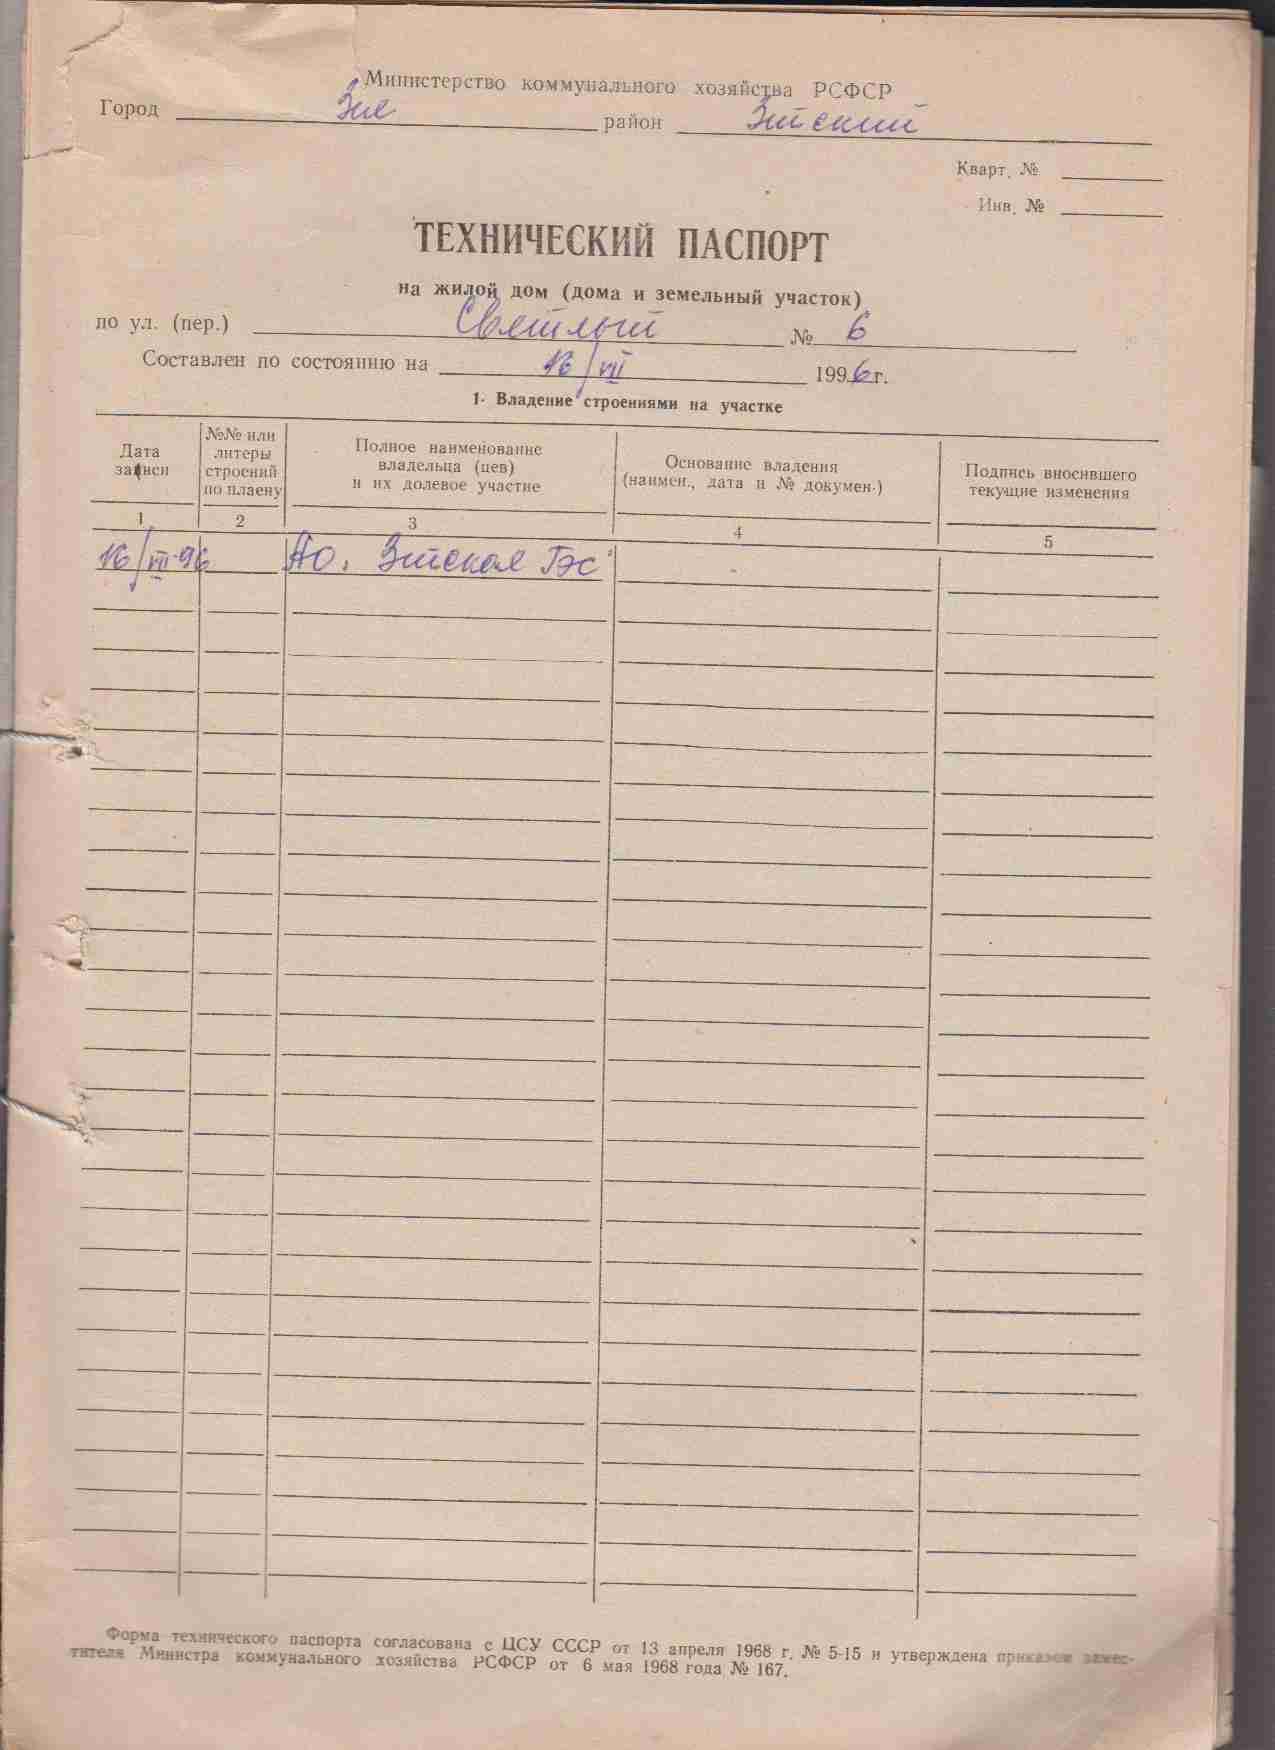 Министерство коммунального хозяйства РСФСР
Город Зея район Зейский
Кварт. №
Инв. №
ТЕХНИЧЕСКИЙ ПАСПОРТ
на жилой дом (дома и земельный участок)
по ул. (пер.) Светлый № 6
Составлен по состоянию на 16/VII 1996 г.
1. Владение строениями на участке
Дата записи
№№ или литеры строений по плаену
Полное наименование владельца (цев) и их долевое участие
Основание владения (наимен., дата и № докумен.)
Подпись вносившего текущие изменения
1 2 3 4 5
16/VII-96 АО. Зейская ГЭС
Форма технического паспорта согласована с ЦСУ СССР от 13 апреля 1968 г. № 5-15 и утверждена приказом замес-
тителя Министра коммунального хозяйства РСФСР от 6 мая 1968 года № 167.